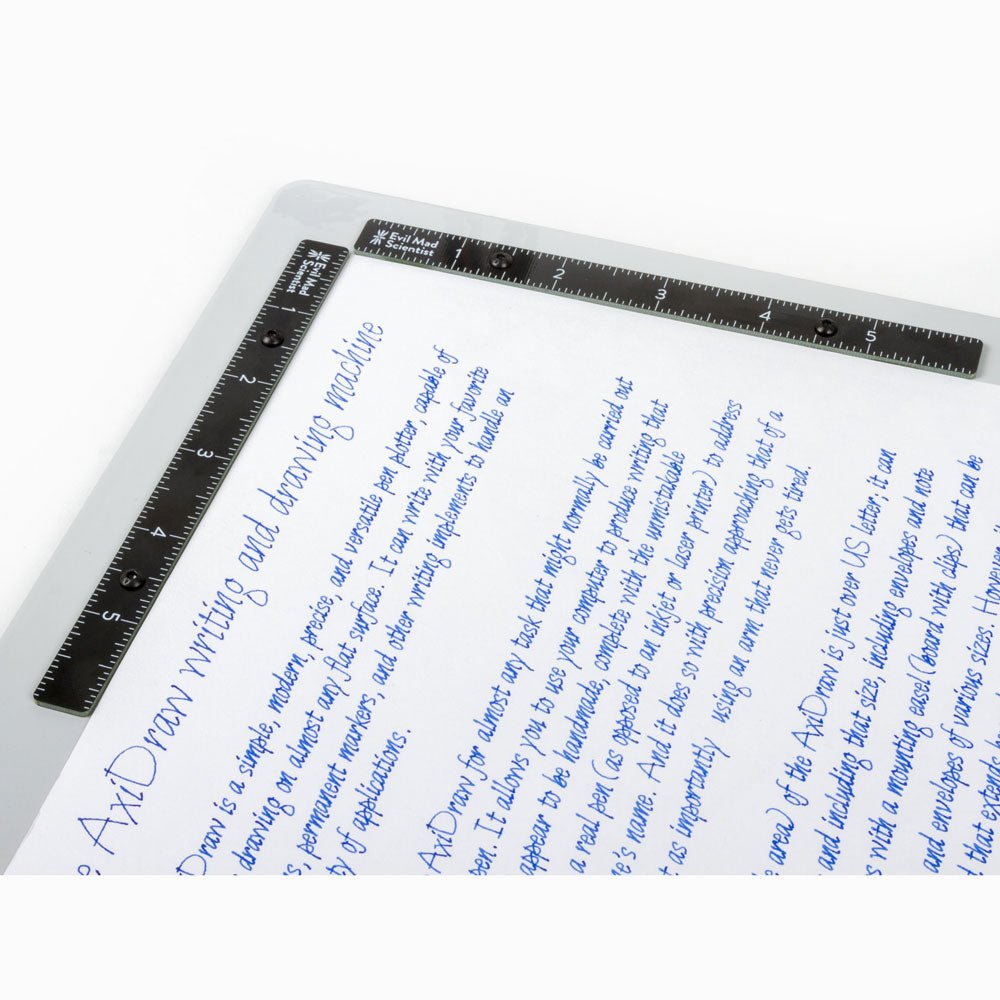 Evil Mad
Scientist
1 2 3 4 5
Evil Mad
Scientist
1 2 3 4 5
AxiDraw writing and drawing machine
Draw is a simple, modern, precise, and versatile pen plotter, capable of
drawing on almost any flat surface. It can write with your favorite
permanent markers, and other writing implements to handle an
of applications.
AxiDraw for almost any task that might normally be carried out
pen. It allows you to use your computer to produce writing that
appear to be handmade, compete with the unmistakable
a real pen (as opposed to an inkjet or laser printer) to address
name. And it does so with precision approaching that of a
as importantly using an arm that never gets tired.
area) of the AxiDraw is just over US letter; it can
and including that size, including envelopes and note
with a mounting easel (board with clips) that can be
and envelopes of various sizes. However
that extends